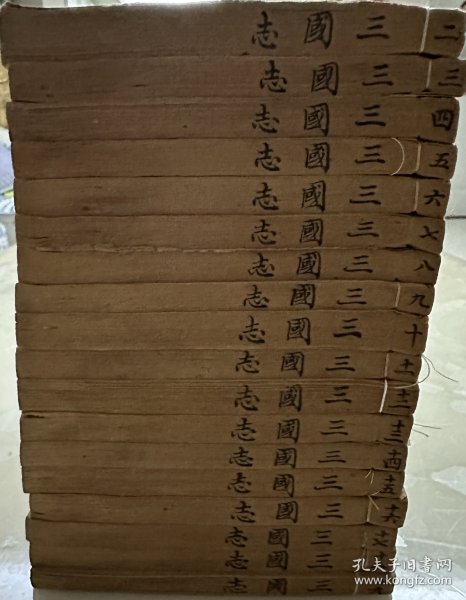 二 三國志
三 三國志
四 三國志
五 三國志
六 三國志
七 三國志
八 三國志
九 三國志
十 三國志
十一 三國志
十二 三國志
十三 三國志
十四 三國志
十五 三國志
十六 三國志
十七 三國志
三國志
三國志
孔夫子旧书网
www.kongfz.com